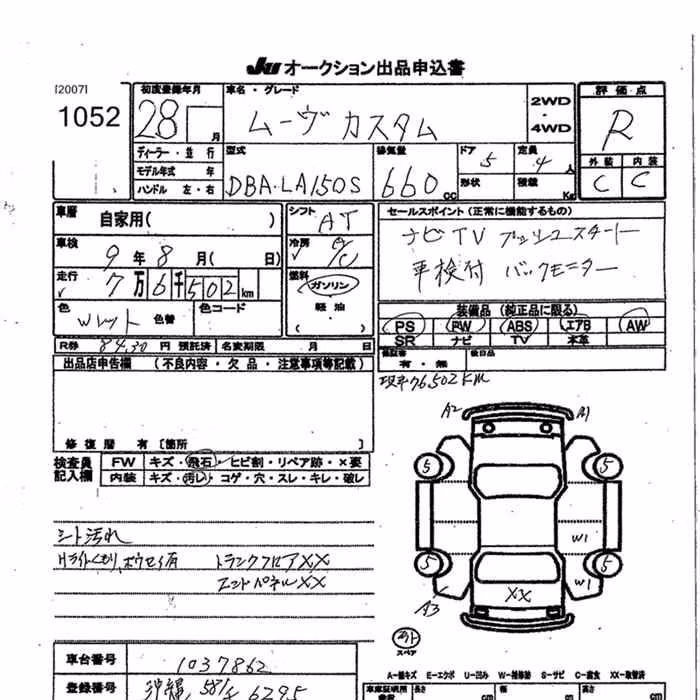 JU オークション出品申込書
[2007]
1052
初度登録年月
28
月
車名・グレード
ムーヴ カスタム
2WD
・
4WD
評価点
R
外装 内装
C C
ディーラー・並行
モデル年式 年
ハンドル 左・右
型式
DBA-LA150S
排気量
660 cc
ドア 5
形状
定員 4 人
積載 Kg
車歴 自家用( )
シフト AT
車検 9 年 8 月( 日)
冷房 A/C
走行 7万6千502km
燃料 ガソリン
軽油
色 Wレット 色替
色コード
セールスポイント(正常に機能するもの)
ナビTV プッシュスタート
車検付 バックモニター
装備品(純正品に限る)
PS PW ABS エアB AW
SR ナビ TV 本革
R券 8430 円 預託済 名変期限 月 日
保証書 有・無 後日品
出品店申告欄 (不良内容・欠品・注意事項等記載)
76502km
修復歴 有〔箇所 〕
検査員
記入欄
FW キズ・飛石・ヒビ割・リペア跡・×要
内装 キズ・汚レ・コゲ・穴・スレ・キレ・破レ
シート汚れ
トランクフロアXX
エンドパネルXX
A2 A1
5 5
W1
5 5
W1
XX
A3
スペア
車台番号 1037862
A-線キズ E-エクボ U-凹み W-補修跡 S-サビ C-腐食 XX-取替済
登録番号 沖縄 581 6295
車庫証明用
長さ cm 幅 cm 高さ cm